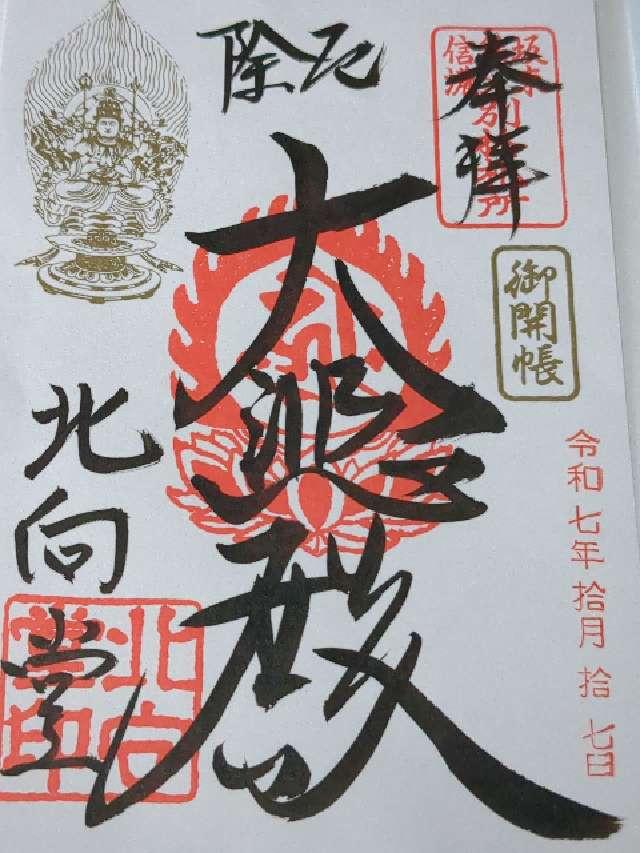 奉拝
坂東
信濃
御開帳
令和七年拾月拾七日
厄除
大悲殿
北向堂
北向堂印